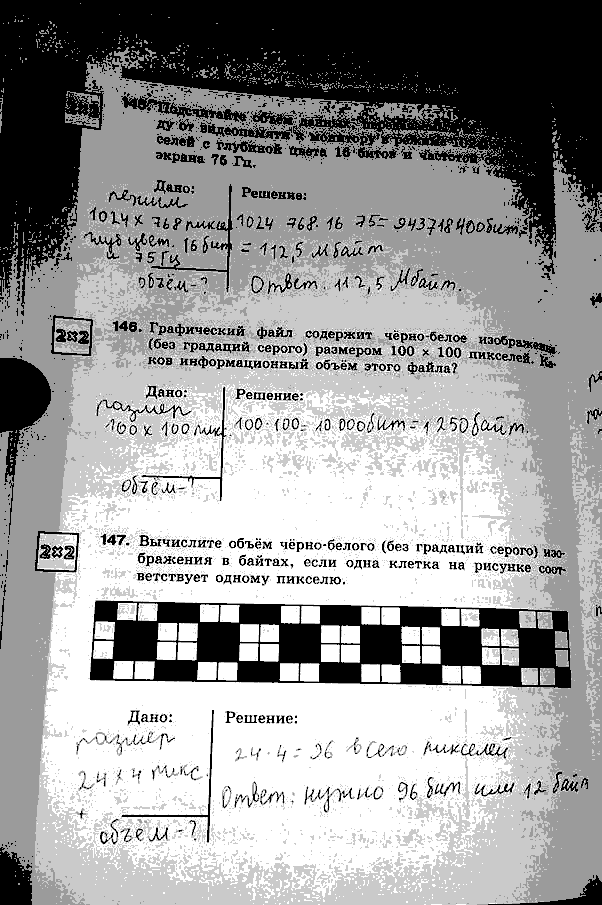 145. Подсчитайте объём данных
ду от видеопамяти к монитору в режиме
селей с глубиной цвета 16 битов и частотой
экрана 75 Гц.
Дано:
Решение:
режим
1024 х 768 пиксел
глуб цвет. 16 бит
и 75 Гц
объём-?
1024 768· 16 75= 943718400бит,
= 112,5 Мбайт
Ответ. 112,5 Мбайт.
2¤2
146. Графический файл содержит чёрно-белое изображение
(без градаций серого) размером 100 × 100 пикселей. Ка-
ков информационный объём этого файла?
Дано:
Решение:
размер
100 х 100 пик.
объём-?
100·100= 10 000бит=1250байт.
2¤2
147. Вычислите объём чёрно-белого (без градаций серого) изо-
бражения в байтах, если одна клетка на рисунке соот-
ветствует одному пикселю.
Дано:
Решение:
размер
24х4 пикс.
объём-?
24·4=96 всего пикселей
Ответ: нужно 96 бит или 12 байт